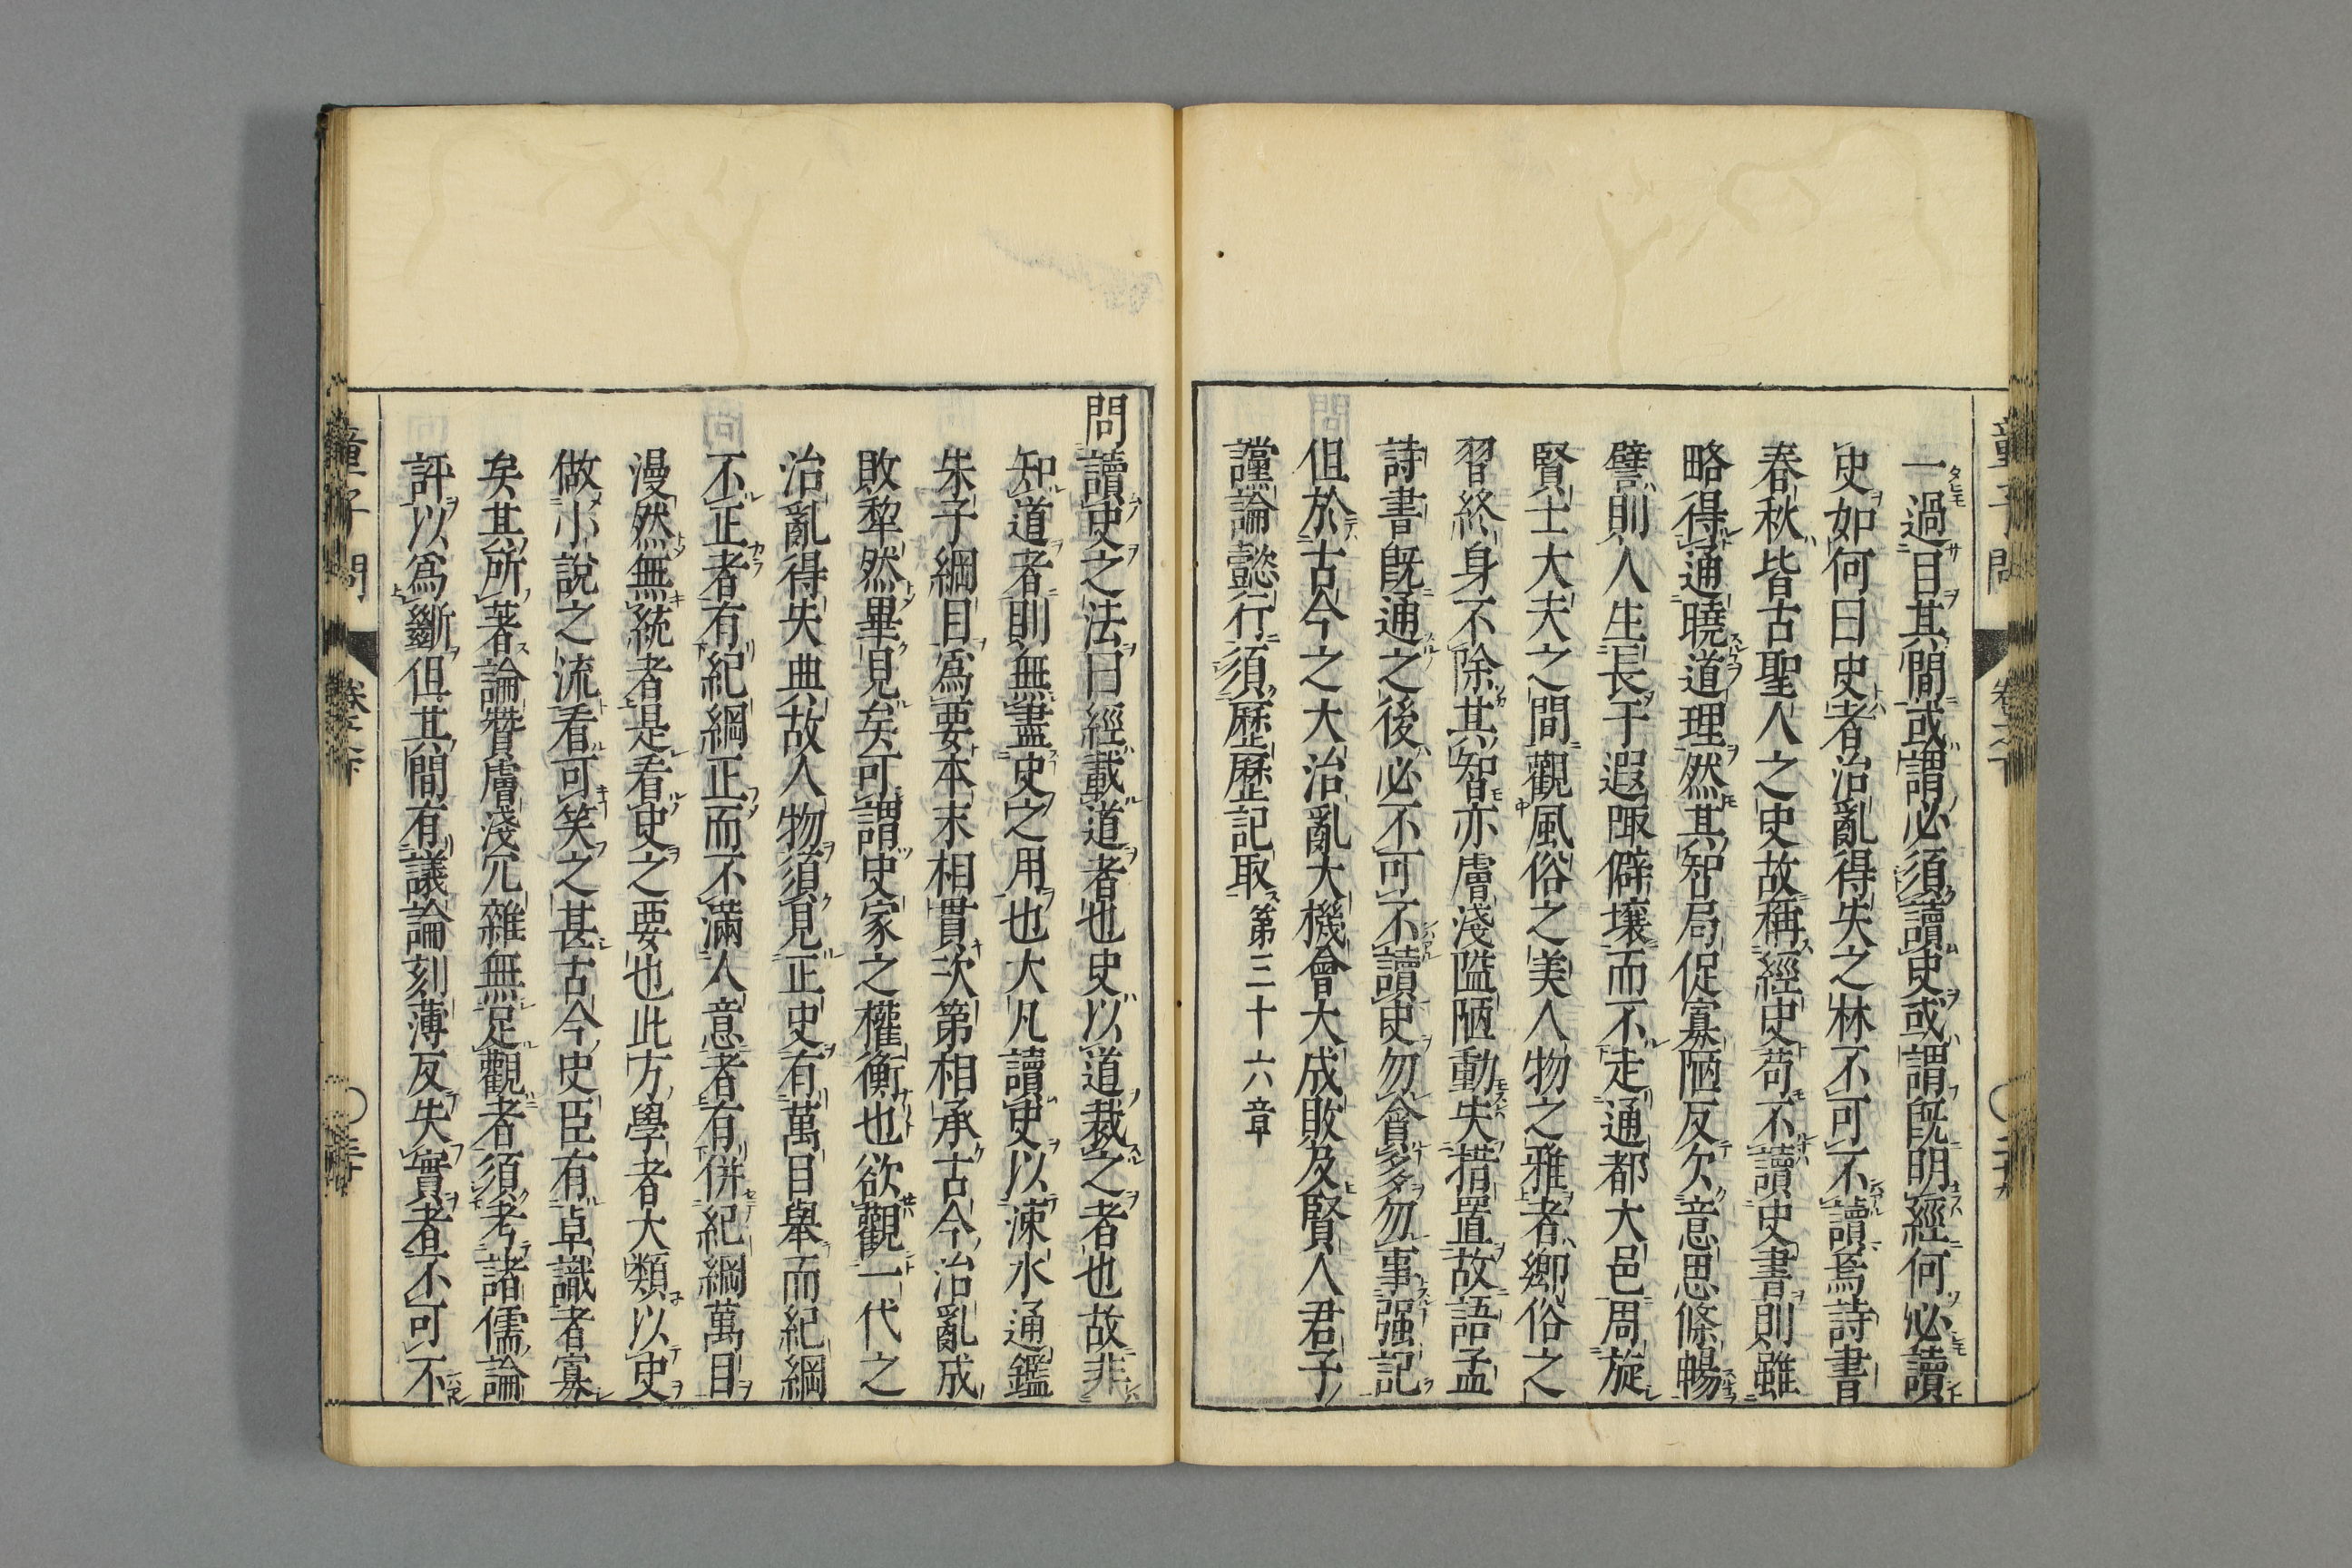 一過目其間或謂必須讀史或謂既明經何必讀
史如何曰史者治亂得失之林不可不讀焉詩書
春秋皆古聖人之史故稱經史苟不讀史書則雖
略得通曉道理然其智局促寡陋反欠意思條暢
譬則人生長于遐陬僻壤而不走通都大邑周旋
賢士大夫之間觀風俗之美人物之雅者鄉俗之
習終身不除其智亦膚淺隘陋動失措置故語孟
詩書既通之後必不可不讀史勿貪多勿事强記
但於古今之大治亂大機會大成敗及賢人君子
讜論懿行須歷歷記取 第三十六章
問讀史之法曰經載道者也史以道裁之者也故非
知道者則無盡史之用也大凡讀史以涑水通鑑
朱子綱目爲要本末相貫次第相承古今治亂成
敗犂然畢見矣可謂史家之權衡也欲觀一代之
治亂得失典故人物須見正史有萬目舉而紀綱
不正者有紀綱正而不滿人意者有併紀綱萬目
漫然無統者是看史之要也此方學者大類以史
做小說之流看可笑之甚古今史臣有卓識者寡
矣其所著論贊膚淺冗雜無足觀者須考諸儒論
評以爲斷但其間有議論刻薄反失實者不可不
童子問 卷之下